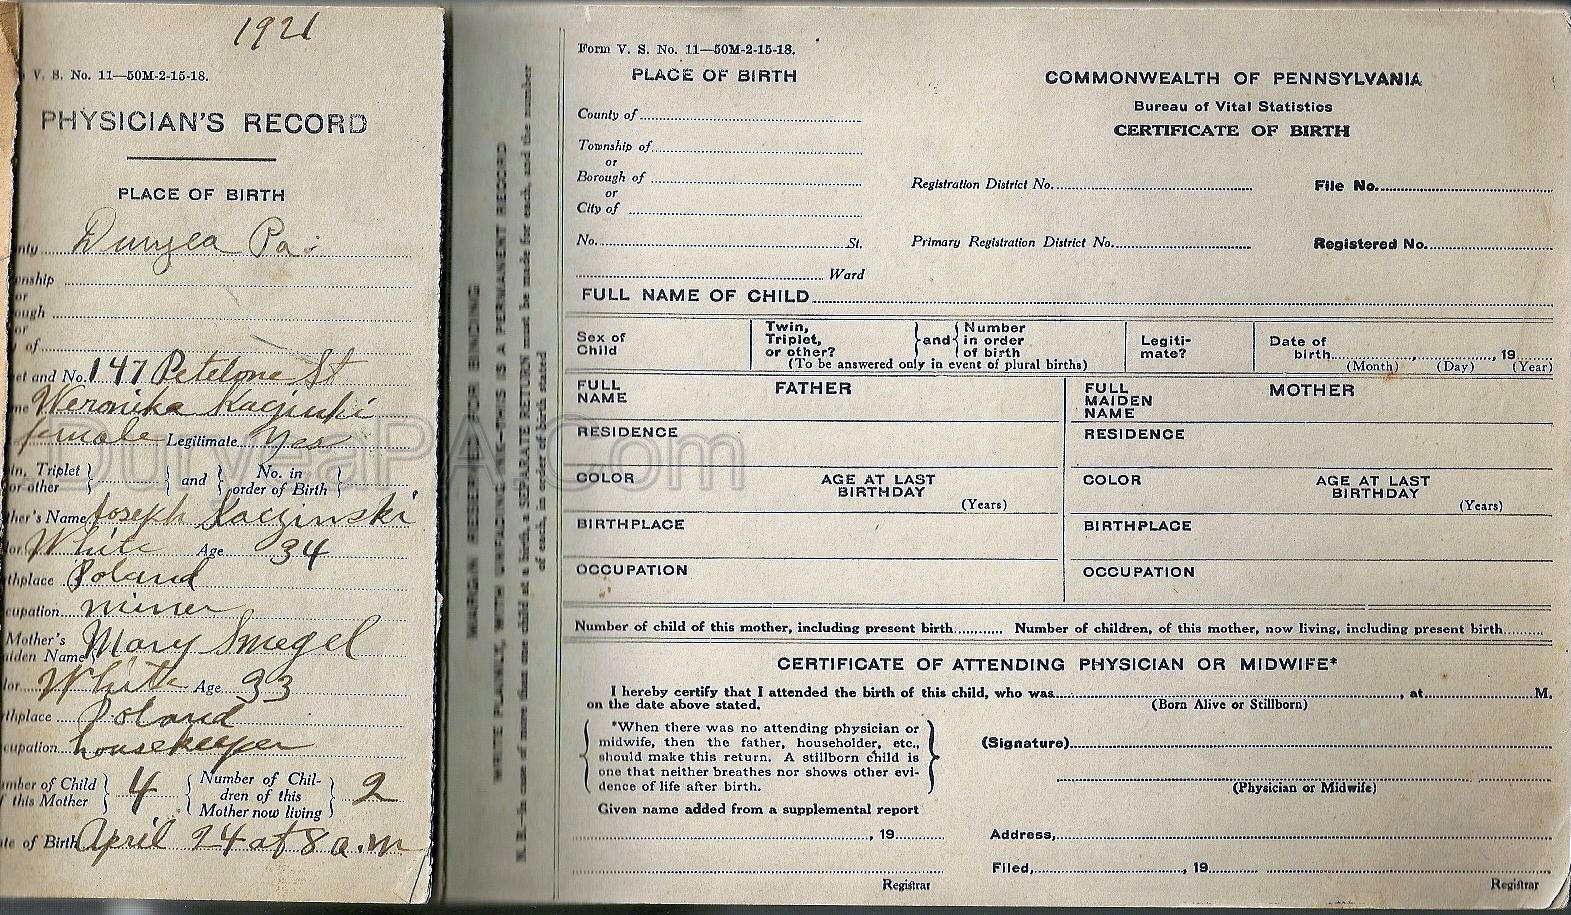 1921
V. S. No. 11—50M-2-15-18.
PHYSICIAN'S RECORD
PLACE OF BIRTH
nty Duryea Pa.
nship
or
ough
or
of
et and No. 147 Petelone St
me Weronika Kaczinski
female Legitimate Yes
in, Triplet } } and { No. in }
or other order of Birth
her's Name Joseph Kaczinski
lor White Age 34
thplace Poland
cupation miner
Mother's
iden Name } Mary Smegel
lor White Age 33
thplace Poland
cupation housekeeper
mber of Child } 4 { Number of Chil- } 2
f this Mother dren of this
Mother now living
te of Birth April 24 at 8 a.m
MARGIN RESERVED FOR BINDING
WRITE PLAINLY, WITH UNFADING INK—THIS IS A PERMANENT RECORD
N. B.—In case of more than one child at a birth, a SEPARATE RETURN must be made for each, and the number
of each, in order of birth stated
Form V. S. No. 11—50M-2-15-18.
PLACE OF BIRTH
County of
Township of
or
Borough of
or
City of
No. St.
Ward
COMMONWEALTH OF PENNSYLVANIA
Bureau of Vital Statistics
CERTIFICATE OF BIRTH
Registration District No. File No.
Primary Registration District No. Registered No.
FULL NAME OF CHILD
Sex of
Child
Twin,
Triplet,
or other?
} and {
Number
in order
of birth
(To be answered only in event of plural births)
Legiti-
mate?
Date of
birth , , 19
(Month) (Day) (Year)
FULL
NAME
FATHER
FULL
MAIDEN
NAME
MOTHER
RESIDENCE RESIDENCE
COLOR AGE AT LAST
BIRTHDAY
(Years)
COLOR AGE AT LAST
BIRTHDAY
(Years)
BIRTHPLACE BIRTHPLACE
OCCUPATION OCCUPATION
Number of child of this mother, including present birth Number of children, of this mother, now living, including present birth
CERTIFICATE OF ATTENDING PHYSICIAN OR MIDWIFE*
I hereby certify that I attended the birth of this child, who was , at M.
on the date above stated. (Born Alive or Stillborn)
*When there was no attending physician or
midwife, then the father, householder, etc.,
should make this return. A stillborn child is
one that neither breathes nor shows other evi-
dence of life after birth.
(Signature)
(Physician or Midwife)
Given name added from a supplemental report
, 19
Address,
Filed, , 19
Registrar Registrar
DuryeaPA.Com